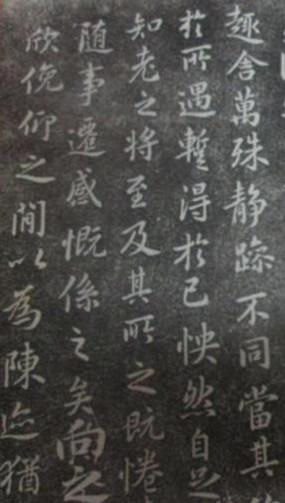 趣舍萬殊静躁不同當其
於所遇暫得於己怏然自足
知老之将至及其所之既惓
随事遷感慨係之矣向之
欣俛仰之間以為陳迹猶